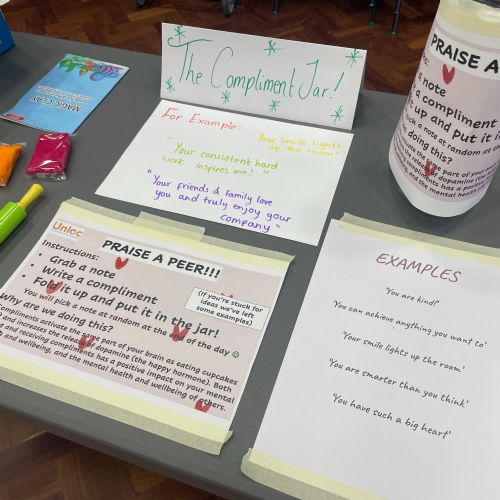 MAGIC CLAY
The Compliment Jar!
For Example:
"Your smile lights
up the room"
"Your consistent hard
work inspires me!"
"Your friends & family love
you and truly enjoy your
company"
Unloc
PRAISE A PEER!!!
Instructions:
• Grab a note
• Write a compliment
• Fold it up and put it in the jar!
(If you're stuck for
ideas we've left
some examples)
You will pick a note at random at the end of the day ☺
Why are we doing this?
Compliments activate the same part of your brain as eating cupcakes
and increases the release of dopamine (the happy hormone). Both
and receiving compliments has a positive impact on your mental
and wellbeing, and the mental health and wellbeing of others.
EXAMPLES
'You are kind!'
'You can achieve anything you want to'
'Your smile lights up the room'
'You are smarter than you think'
'You have such a big heart'
PRAISE A
a note
a compliment
up and put it
pick a note at random
doing this?
the same part of your
of dopamine (the hap
compliments has a positive
and the mental health